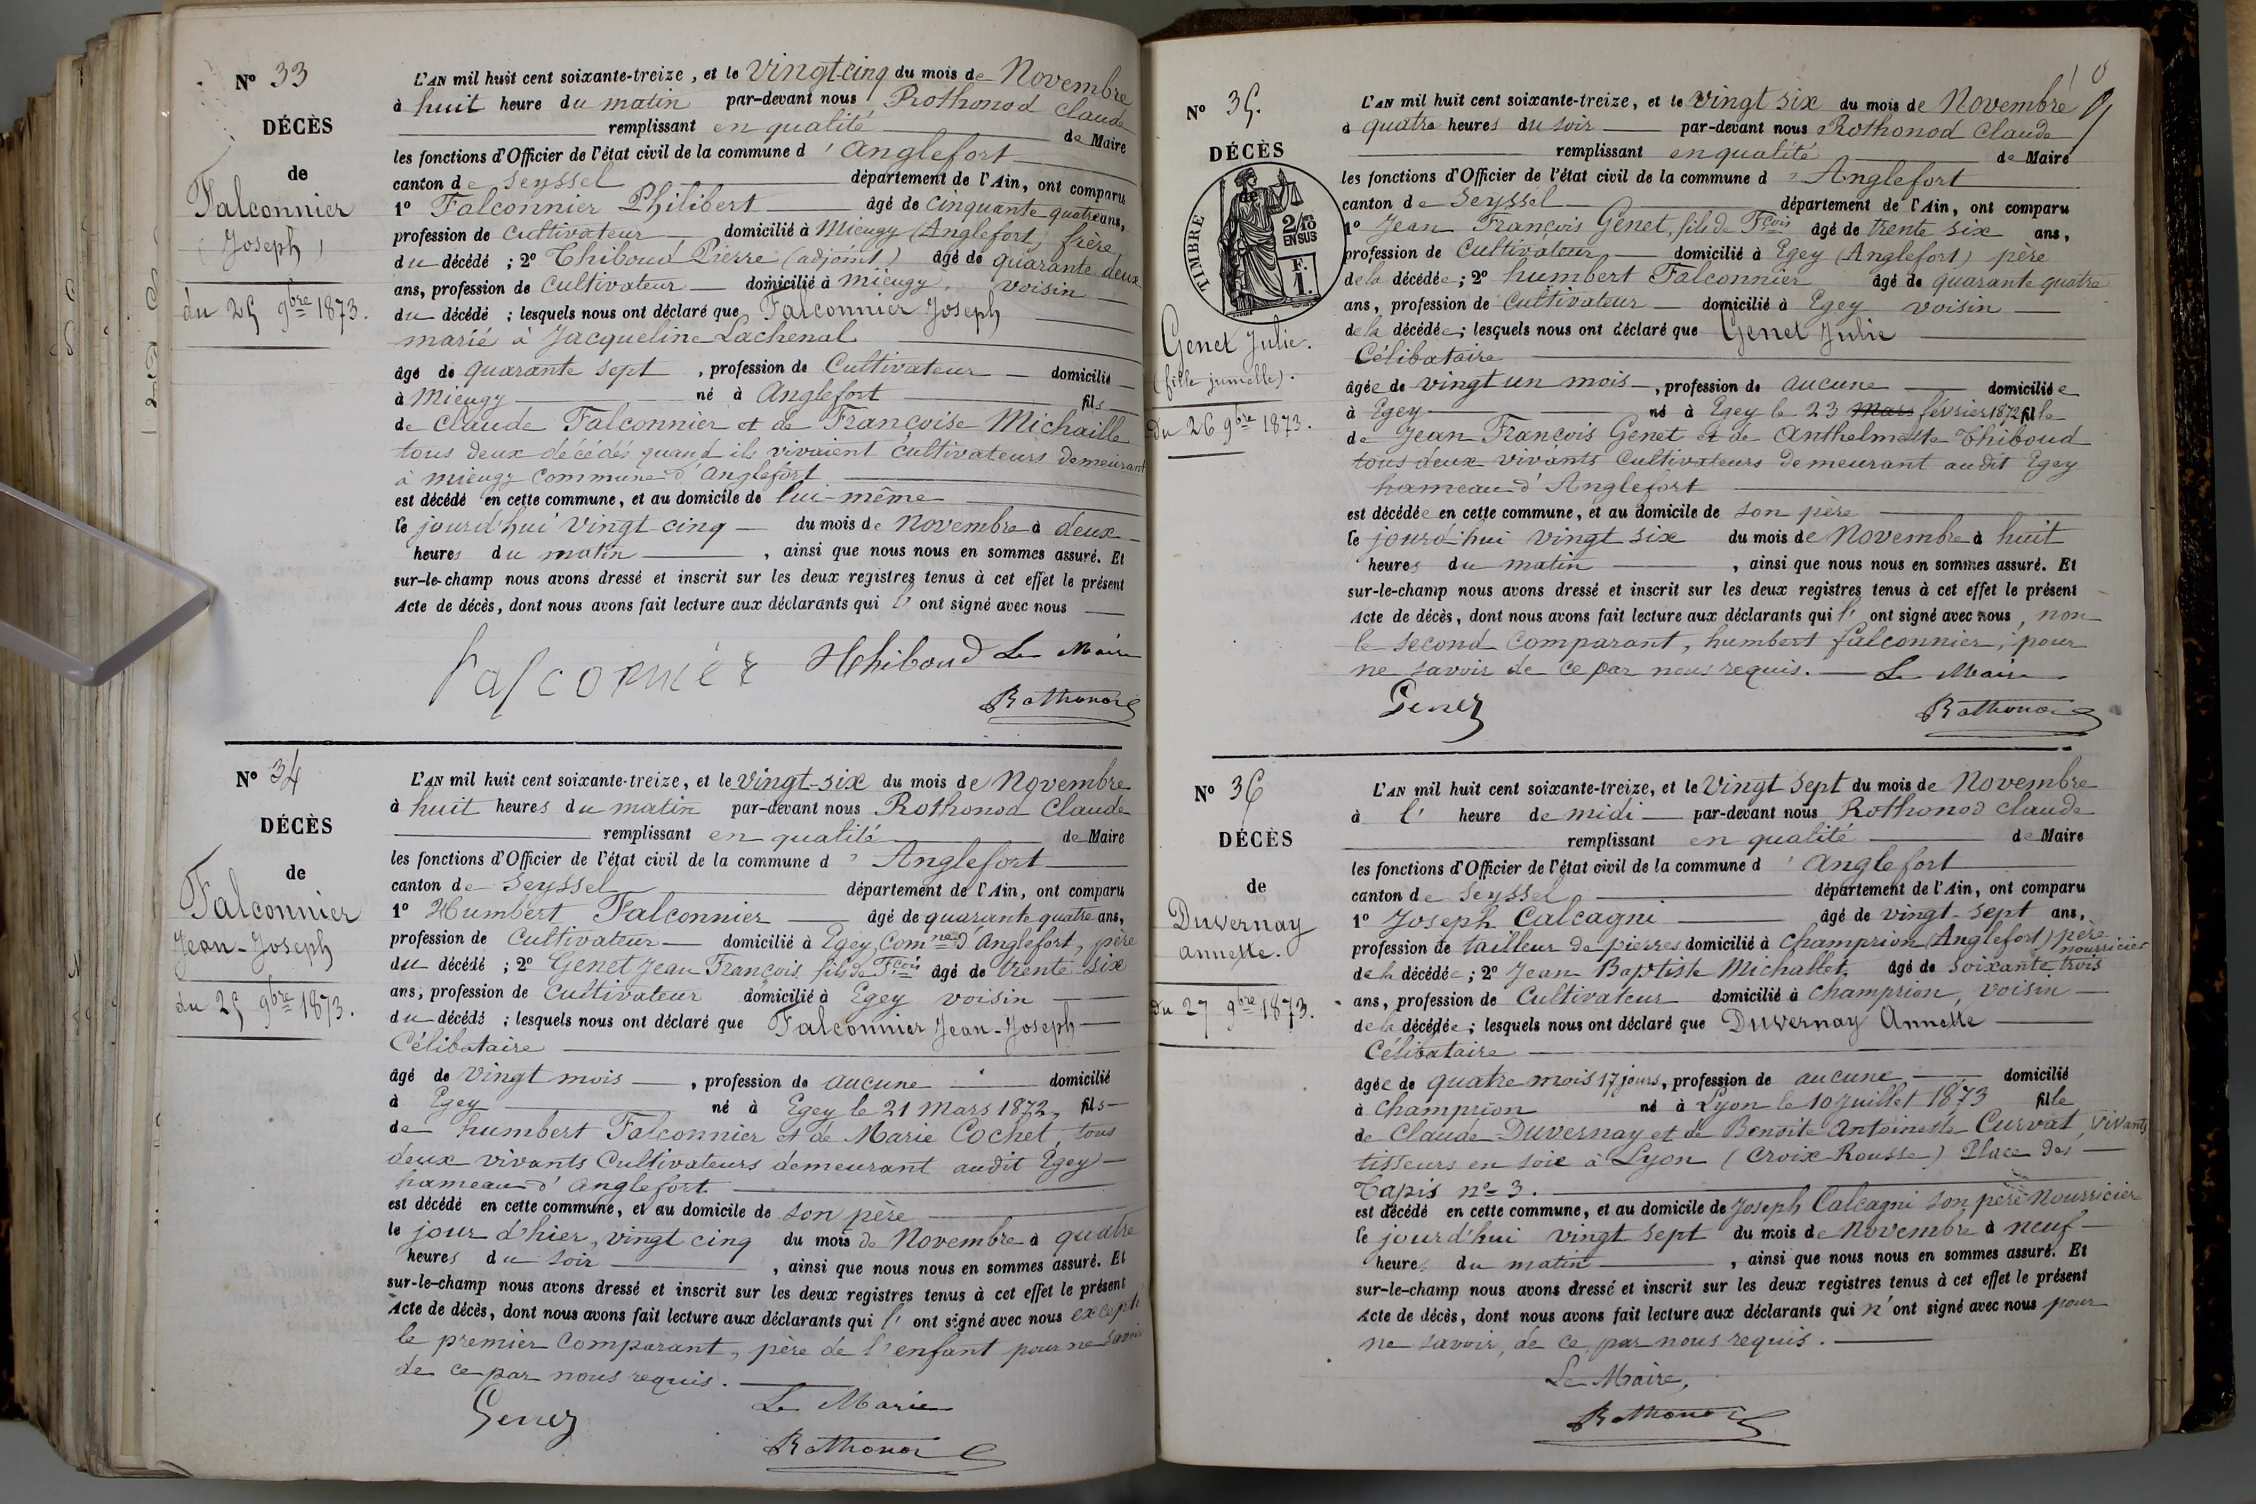 N° 33
DÉCÈS
de
Falconnier
(Joseph)
du 25 9bre 1873.
L'AN mil huit cent soixante-treize, et le vingt-cinq du mois de Novembre
à huit heure du matin par-devant nous Rothonod Claude
remplissant en qualité de Maire
les fonctions d'Officier de l'état civil de la commune d'Anglefort
canton de Seyssel département de l'Ain, ont comparu
1° Falconnier Philibert âgé de cinquante quatre ans,
profession de Cultivateur domicilié à Mieugy (Anglefort) frère
du décédé ; 2° Thiboud Pierre (adjoint) âgé de quarante deux
ans, profession de Cultivateur domicilié à Mieugy, voisin
du décédé ; lesquels nous ont déclaré que Falconnier Joseph
marié à Jacqueline Lachenal
âgé de quarante sept, profession de Cultivateur domicilié
à Mieugy né à Anglefort fils
de Claude Falconnier et de Françoise Michaille
tous deux décédés quand ils vivaient cultivateurs demeurant
à Mieugy commune d'Anglefort
est décédé en cette commune, et au domicile de lui-même
le jourd'hui vingt cinq du mois de Novembre à deux
heures du matin, ainsi que nous nous en sommes assuré. Et
sur-le-champ nous avons dressé et inscrit sur les deux registres tenus à cet effet le présent
Acte de décès, dont nous avons fait lecture aux déclarants qui l'ont signé avec nous
falconnier Thiboud Le Maire
Rothonod
N° 34
DÉCÈS
de
Falconnier
Jean-Joseph
du 25 9bre 1873.
L'AN mil huit cent soixante-treize, et le vingt-six du mois de Novembre
à huit heures du matin par-devant nous Rothonod Claude
remplissant en qualité de Maire
les fonctions d'Officier de l'état civil de la commune d'Anglefort
canton de Seyssel département de l'Ain, ont comparu
1° Humbert Falconnier âgé de quarante quatre ans,
profession de Cultivateur domicilié à Egey, Comne d'Anglefort, père
du décédé ; 2° Genet Jean François, fils de Fçois âgé de trente six
ans, profession de Cultivateur domicilié à Egey voisin
du décédé ; lesquels nous ont déclaré que Falconnier Jean-Joseph
Célibataire
âgé de vingt mois, profession de aucune domicilié
à Egey né à Egey le 21 Mars 1872, fils
de humbert Falconnier et de Marie Cochet, tous
deux vivants Cultivateurs demeurant audit Egey
hameau d'Anglefort
est décédé en cette commune, et au domicile de son père
le jour d'hier, vingt cinq du mois de Novembre à quatre
heures du soir, ainsi que nous nous en sommes assuré. Et
sur-le-champ nous avons dressé et inscrit sur les deux registres tenus à cet effet le présent
Acte de décès, dont nous avons fait lecture aux déclarants qui l'ont signé avec nous excepté
le premier comparant, père de l'enfant pour ne savoir
de ce par nous requis.
Genet Le Marie
Rothonod
N° 35.
DÉCÈS
TIMBRE
2/10
EN SUS
F.
1.
Genet Julie.
(fille jumelle).
Du 26 9bre 1873.
L'AN mil huit cent soixante-treize, et le vingt six du mois de Novembre
à quatre heures du soir par-devant nous Rothonod Claude
remplissant en qualité de Maire
les fonctions d'Officier de l'état civil de la commune d'Anglefort
canton de Seyssel département de l'Ain, ont comparu
1° Jean François Genet, fils de Fçois âgé de trente six ans,
profession de Cultivateur domicilié à Egey (Anglefort) père
de la décédée ; 2° humbert Falconnier âgé de quarante quatre
ans, profession de Cultivateur domicilié à Egey voisin
de la décédée ; lesquels nous ont déclaré que Genet Julie
Célibataire
âgée de vingt un mois, profession de aucune domiciliée
à Egey né à Egey le 23 Mars février 1872 fille
de Jean François Genet et de Anthelmette Thiboud
tous deux vivants Cultivateurs demeurant audit Egey
hameau d'Anglefort
est décédée en cette commune, et au domicile de son père
le jourd'hui vingt six du mois de Novembre à huit
heures du matin, ainsi que nous nous en sommes assuré. Et
sur-le-champ nous avons dressé et inscrit sur les deux registres tenus à cet effet le présent
Acte de décès, dont nous avons fait lecture aux déclarants qui l'ont signé avec nous, non
le second comparant, humbert falconnier, pour
ne savoir de ce par nous requis. Le Maire
Genet
Rothonod
N° 36
DÉCÈS
de
Duvernay
annette.
Du 27 9bre 1873.
L'AN mil huit cent soixante-treize, et le Vingt sept du mois de Novembre
à l'heure de midi par-devant nous Rothonod Claude
remplissant en qualité de Maire
les fonctions d'Officier de l'état civil de la commune d'Anglefort
canton de Seyssel département de l'Ain, ont comparu
1° Joseph Calcagni âgé de vingt-sept ans,
profession de tailleur de pierres domicilié à Champrion (Anglefort) père nourricier
de la décédée ; 2° Jean Baptiste Michallet, âgé de soixante trois
ans, profession de Cultivateur domicilié à Champrion, voisin
de la décédée ; lesquels nous ont déclaré que Duvernay Annette
Célibataire
âgée de quatre mois 17 jours, profession de aucune domicilié
à Champrion né à Lyon le 10 Juillet 1873 fille
de Claude Duvernay et de Benoite Antoinette Curvat, vivants
tisseurs en soie à Lyon (Croix-Rousse) Place des
Tapis n° 3.
est décédé en cette commune, et au domicile de Joseph Calcagni son père Nourricier
le jourd'hui vingt sept du mois de Novembre à neuf
heures du matin, ainsi que nous nous en sommes assuré. Et
sur-le-champ nous avons dressé et inscrit sur les deux registres tenus à cet effet le présent
Acte de décès, dont nous avons fait lecture aux déclarants qui n'ont signé avec nous pour
ne savoir, de ce par nous requis.
Le Maire,
Rothonod